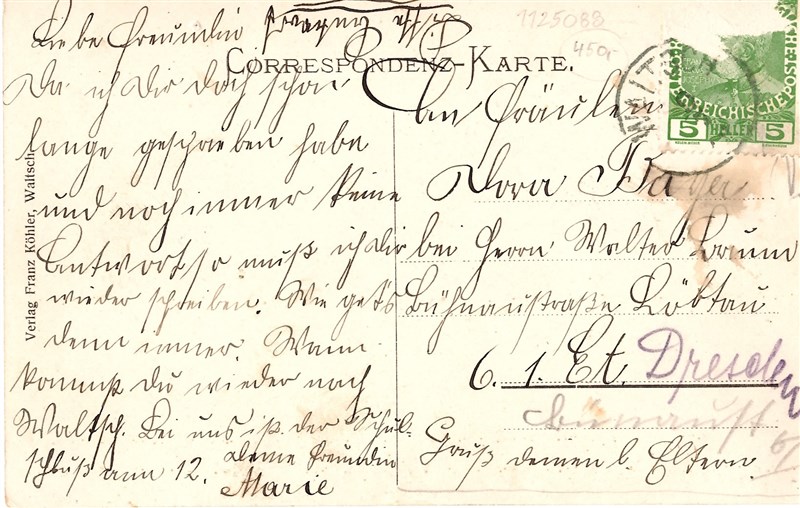 1125088
450,-
CORRESPONDENZ-KARTE.
ÖSTERREICHISCHE POST
5 HELLER 5
Verlag Franz Köhler, Waltsch.
Liebe Freundin
Da ich dir doch schon
lange geschrieben habe
und noch immer keine
Antwort so muß ich dir
wieder schreiben. Wie get's
denn immer. Wann
kommst du wieder nach
Waltsch. Bei uns ist der Schul-
schluß am 12. deine Freundin
Marie
An Fräulein
Dora Bayer
bei Herrn Walter Braun
Bühnaustraße Löbtau
6. 1. Et. Dresden
Bünaustr
6/I
Gruß deinen l. Eltern.